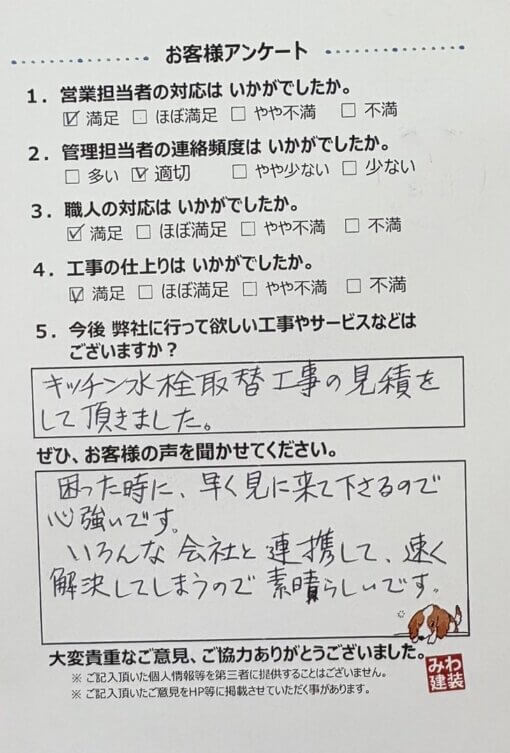 お客様アンケート
1．営業担当者の対応は いかがでしたか。
☑ 満足 □ ほぼ満足 □ やや不満 □ 不満
2．管理担当者の連絡頻度は いかがでしたか。
□ 多い ☑ 適切 □ やや少ない □ 少ない
3．職人の対応は いかがでしたか。
☑ 満足 □ ほぼ満足 □ やや不満 □ 不満
4．工事の仕上りは いかがでしたか。
☑ 満足 □ ほぼ満足 □ やや不満 □ 不満
5．今後 弊社に行って欲しい工事やサービスなどは
ございますか？
キッチン水栓取替工事の見積を
して頂きました。
ぜひ、お客様の声を聞かせてください。
困った時に、早く見に来て下さるので
心強いです。
いろんな会社と連携して、速く
解決してしまうので素晴らしいです。
大変貴重なご意見、ご協力ありがとうございました。
みわ
建装
※ ご記入頂いた個人情報等を第三者に提供することはございません。
※ ご記入頂いたご意見をHP等に掲載させていただく事があります。